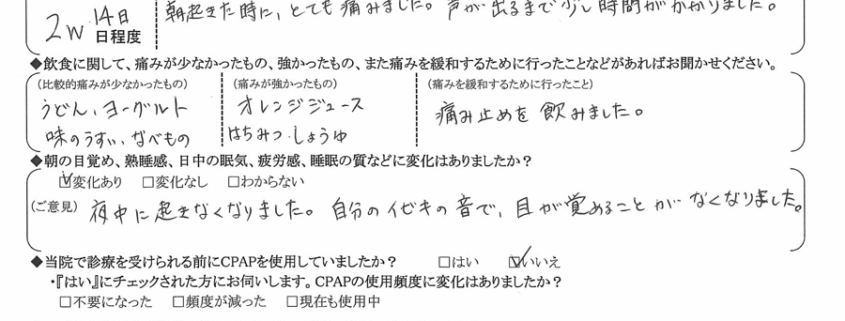 朝起きた時に、とても痛みました。声が出るまで少し時間がかかりました。
2w 14日
日程度
◆飲食に関して、痛みが少なかったもの、強かったもの、また痛みを緩和するために行ったことなどがあればお聞かせください。
(比較的痛みが少なかったもの) (痛みが強かったもの) (痛みを緩和するために行ったこと)
うどん、ヨーグルト オレンジジュース 痛み止めを飲みました。
味のうすい、なべもの はちみつ.しょうゆ
◆朝の目覚め、熟睡感、日中の眠気、疲労感、睡眠の質などに変化はありましたか？
☑変化あり □変化なし □わからない
(ご意見) 夜中に起きなくなりました。自分のイビキの音で、目が覚めることがなくなりました。
◆当院で診療を受けられる前にCPAPを使用していましたか？ □はい ☑いいえ
・『はい』にチェックされた方にお伺いします。CPAPの使用頻度に変化はありましたか？
□不要になった □頻度が減った □現在も使用中